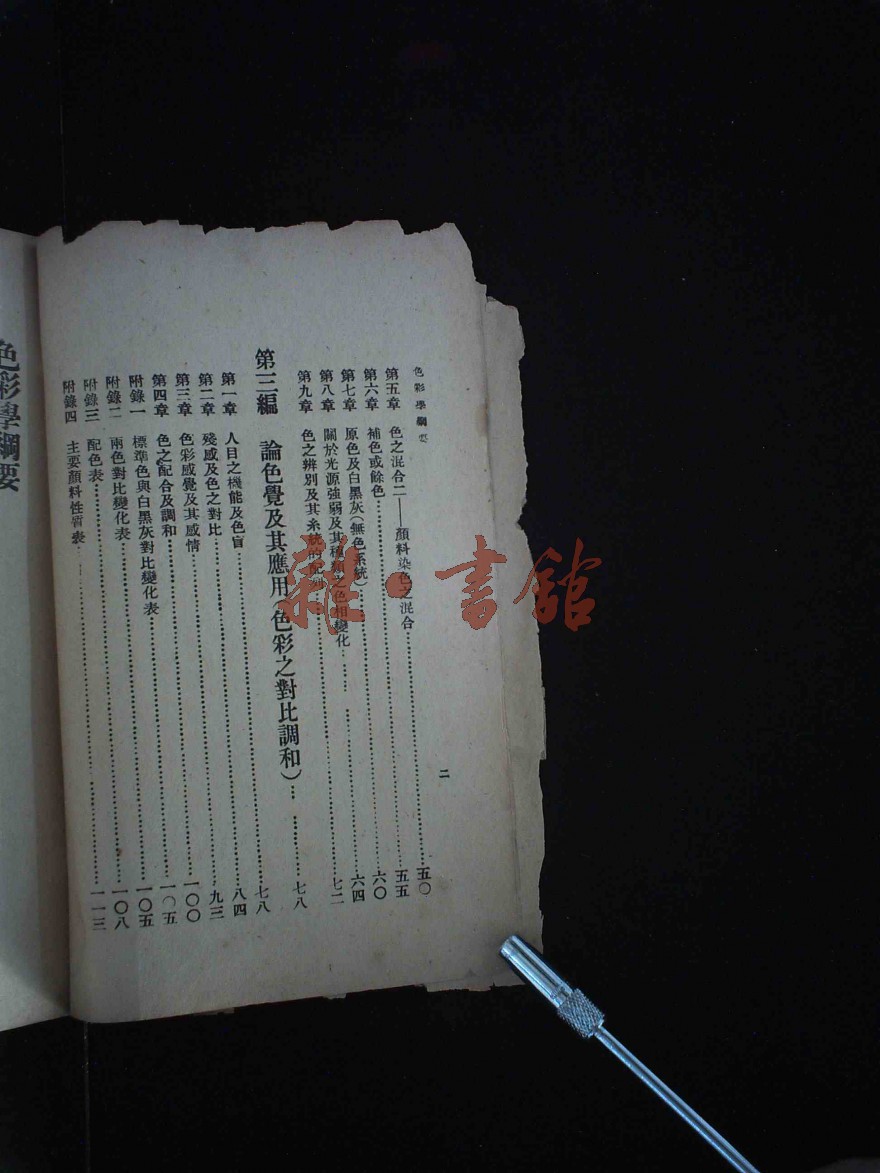 色彩學綱要 二
第五章 色之混合二——顏料染色之混合……五〇
第六章 補色或餘色……五五
第七章 原色及白黑灰(無色系統)……六〇
第八章 關於光源強弱及其種類之色相變化……六四
第九章 色之辨別及其系統的配列……七二
第三編 論色覺及其應用 色彩之對比調和)……七八
第一章 人目之機能及色盲……七八
第二章 殘感及色之對比……八四
第三章 色彩感覺及其感情……九三
第四章 色之配合及調和……一〇〇
附錄一 標準色與白黑灰對比變化表……一〇五
附錄二 兩色對比變化表……一〇五
附錄三 配色表……一〇八
附錄四 主要顏料性質表……一一三
色彩學綱要
雜·書館